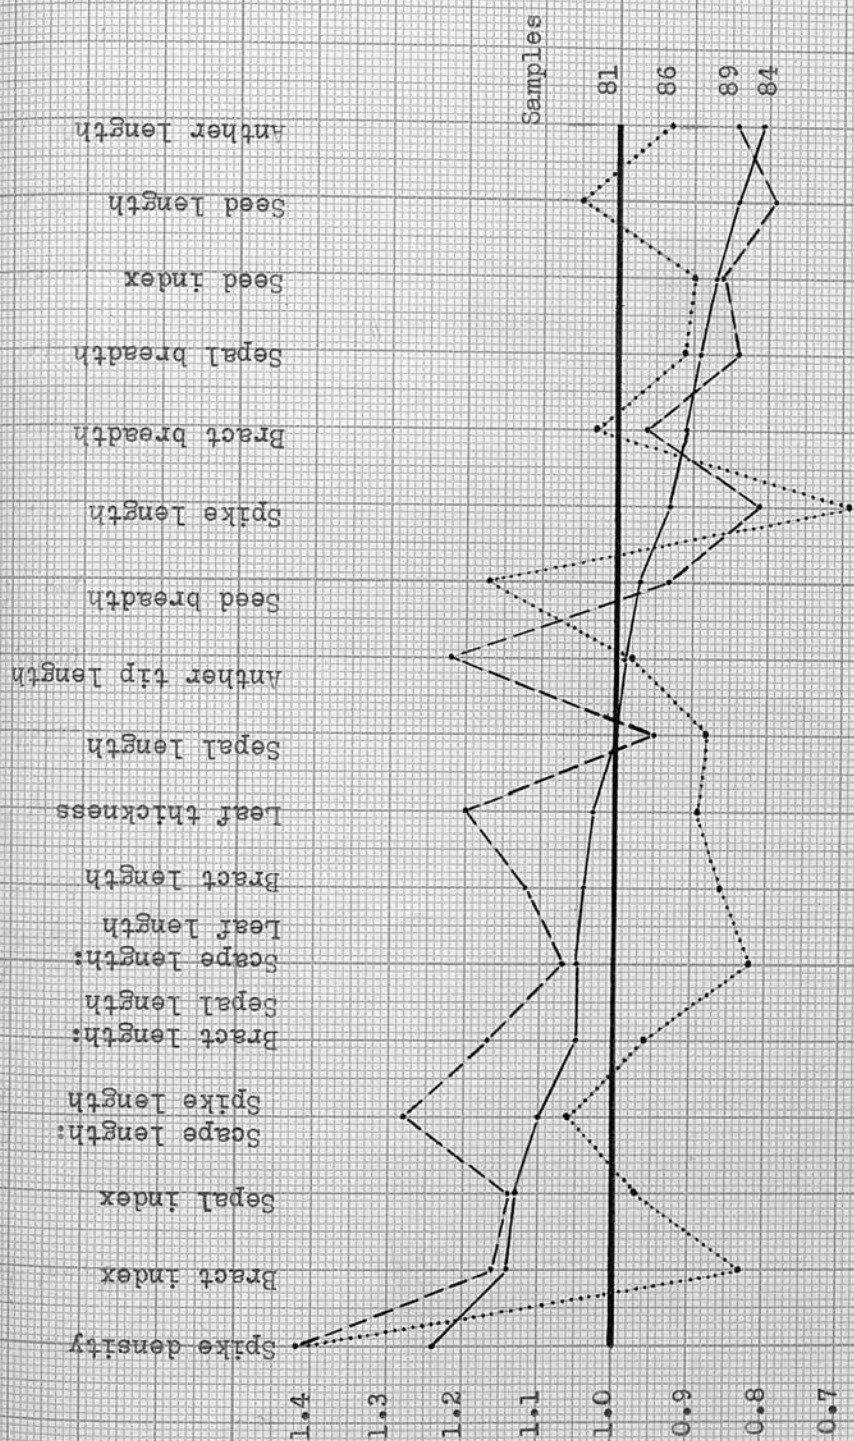 Samples
81
86
89
84
Anther length
Seed length
Seed index
Sepal breadth
Bract breadth
Spike length
Seed breadth
Anther tip length
Sepal length
Leaf thickness
Bract length
Scape length:
Leaf length
Bract length:
Sepal length
Scape length:
Spike length
Sepal index
Bract index
Spike density
1.4
1.3
1.2
1.1
1.0
0.9
0.8
0.7